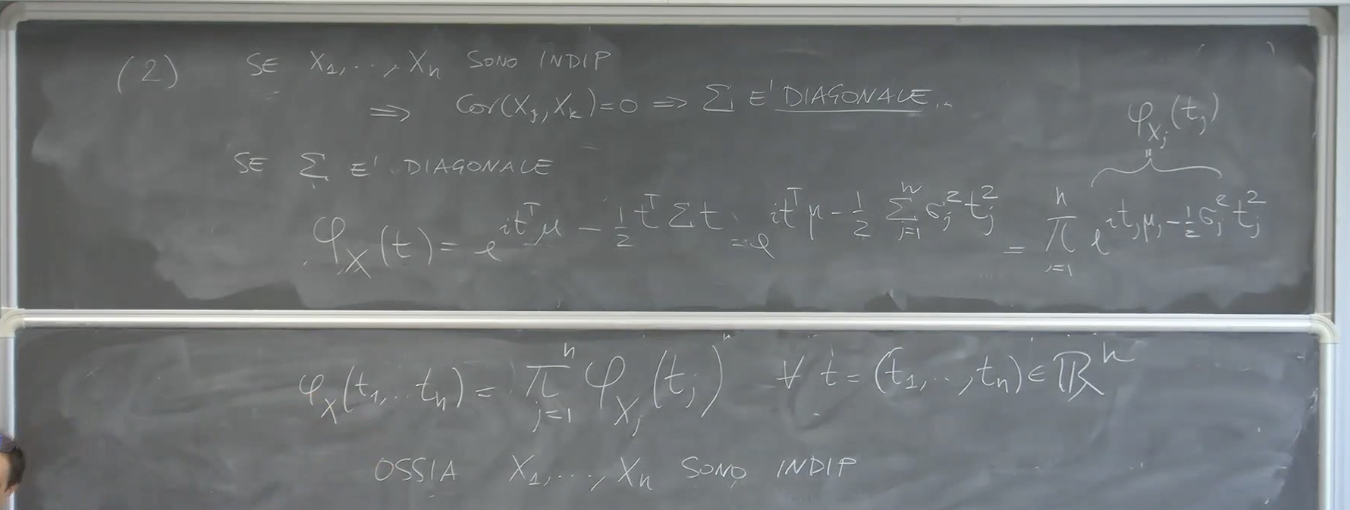 (2) SE X₁,..,Xₙ SONO INDIP
⇒ Cov(Xⱼ,Xₖ)=0 ⇒ Σ E' DIAGONALE.
SE Σ E' DIAGONALE
φ_Xⱼ(tⱼ)
φ_X(t) = e^{it^Tμ - ½ t^T Σ t} = e^{it^Tμ - ½ Σ_{j=1}^n σⱼ² tⱼ²} = ∏_{j=1}^n e^{itⱼμⱼ - ½σⱼ²tⱼ²}
φ_X(t₁,..tₙ) = ∏_{j=1}^n φ_Xⱼ(tⱼ) ∀ t = (t₁,..,tₙ) ∈ ℝⁿ
OSSIA X₁,...,Xₙ SONO INDIP